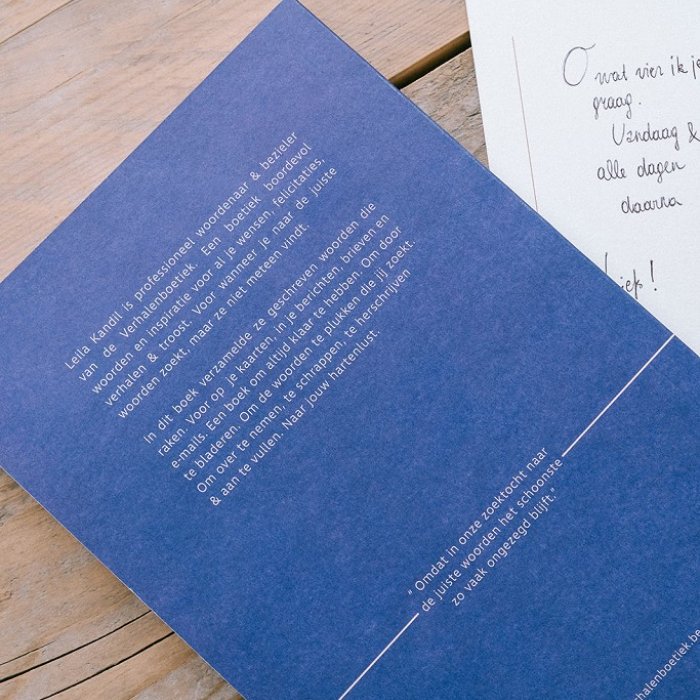 Leila Kandil is professioneel woordenaar & bezieler
van de Verhalenboetiek. Een boetiek boordevol
woorden en inspiratie voor al je wensen, felicitaties,
verhalen & troost. Voor wanneer je naar de juiste
woorden zoekt, maar ze niet meteen vindt.
In dit boek verzamelde ze geschreven woorden die
raken. Voor op je kaarten, in je berichten, brieven en
e-mails. Een boek om altijd klaar te hebben. Om door
te bladeren. Om de woorden te plukken die jij zoekt.
Om over te nemen, te schrappen, te herschrijven
& aan te vullen. Naar jouw hartenlust.
" Omdat in onze zoektocht naar
de juiste woorden het schoonste
zo vaak ongezegd blijft."
rhalenboetiek.be
O wat vier ik je
graag.
Vandaag &
alle dagen
daarna